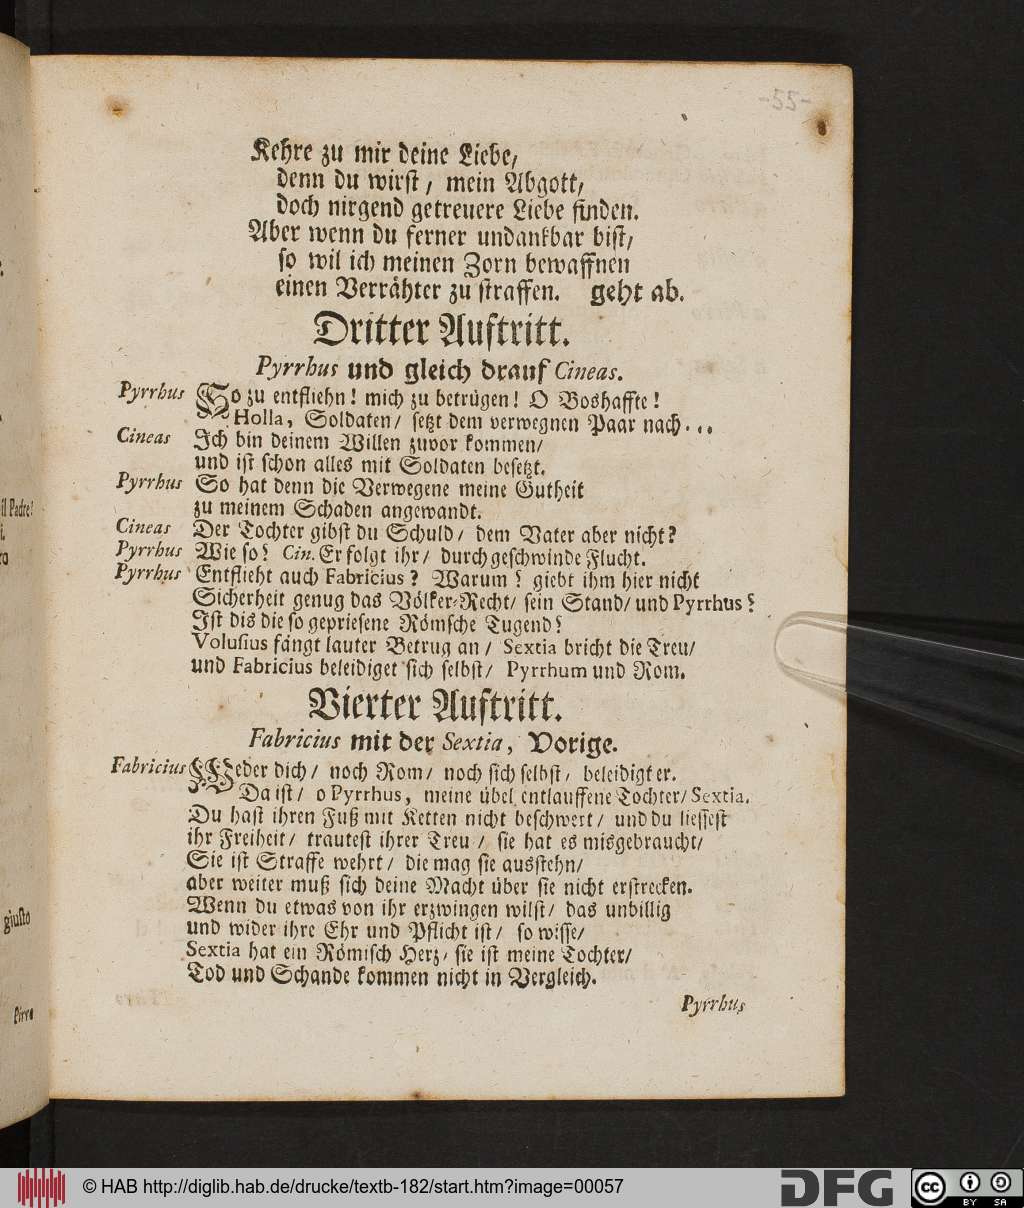 -55-
Kehre zu mir deine Liebe/
denn du wirst / mein Abgott/
doch nirgend getreuere Liebe finden.
Aber wenn du ferner undankbar bist/
so wil ich meinen Zorn bewaffnen
einen Verrähter zu straffen. geht ab.
Dritter Auftritt.
Pyrrhus und gleich drauf Cineas.
Pyrrhus So zu entfliehn! mich zu betrügen! O Boshaffte!
Holla, Soldaten/ setzt dem verwegnen Paar nach...
Cineas Ich bin deinem Willen zuvor kommen/
und ist schon alles mit Soldaten besetzt.
Pyrrhus So hat denn die Verwegene meine Gutheit
zu meinem Schaden angewandt.
Cineas Der Tochter gibst du Schuld/ dem Vater aber nicht?
Pyrrhus Wie so? Cin. Er folgt ihr/ durch geschwinde Flucht.
Pyrrhus Entflieht auch Fabricius? Warum? giebt ihm hier nicht
Sicherheit genug das Völker-Recht/ sein Stand/ und Pyrrhus?
Ist dis die so gepriesene Römsche Tugend?
Volusius fängt lauter Betrug an/ Sextia bricht die Treu/
und Fabricius beleidiget sich selbst/ Pyrrhum und Rom.
Vierter Auftritt.
Fabricius mit der Sextia, Vorige.
Fabricius Weder dich/ noch Rom/ noch sich selbst/ beleidigt er.
Da ist/ o Pyrrhus, meine übel entlauffene Tochter/ Sextia.
Du hast ihren Fuß mit Ketten nicht beschwert/ und du liessest
ihr Freiheit/ trautest ihrer Treu/ sie hat es misgebraucht/
Sie ist Straffe wehrt/ die mag sie ausstehn/
aber weiter muß sich deine Macht über sie nicht erstrecken.
Wenn du etwas von ihr erzwingen wilst/ das unbillig
und wider ihre Ehr und Pflicht ist/ so wisse/
Sextia hat ein Römisch Herz/ sie ist meine Tochter/
Tod und Schande kommen nicht in Vergleich.
Pyrrhus
il Padre!
giusto
Pirro
© HAB http://diglib.hab.de/drucke/textb-182/start.htm?image=00057
DFG
cc BY SA